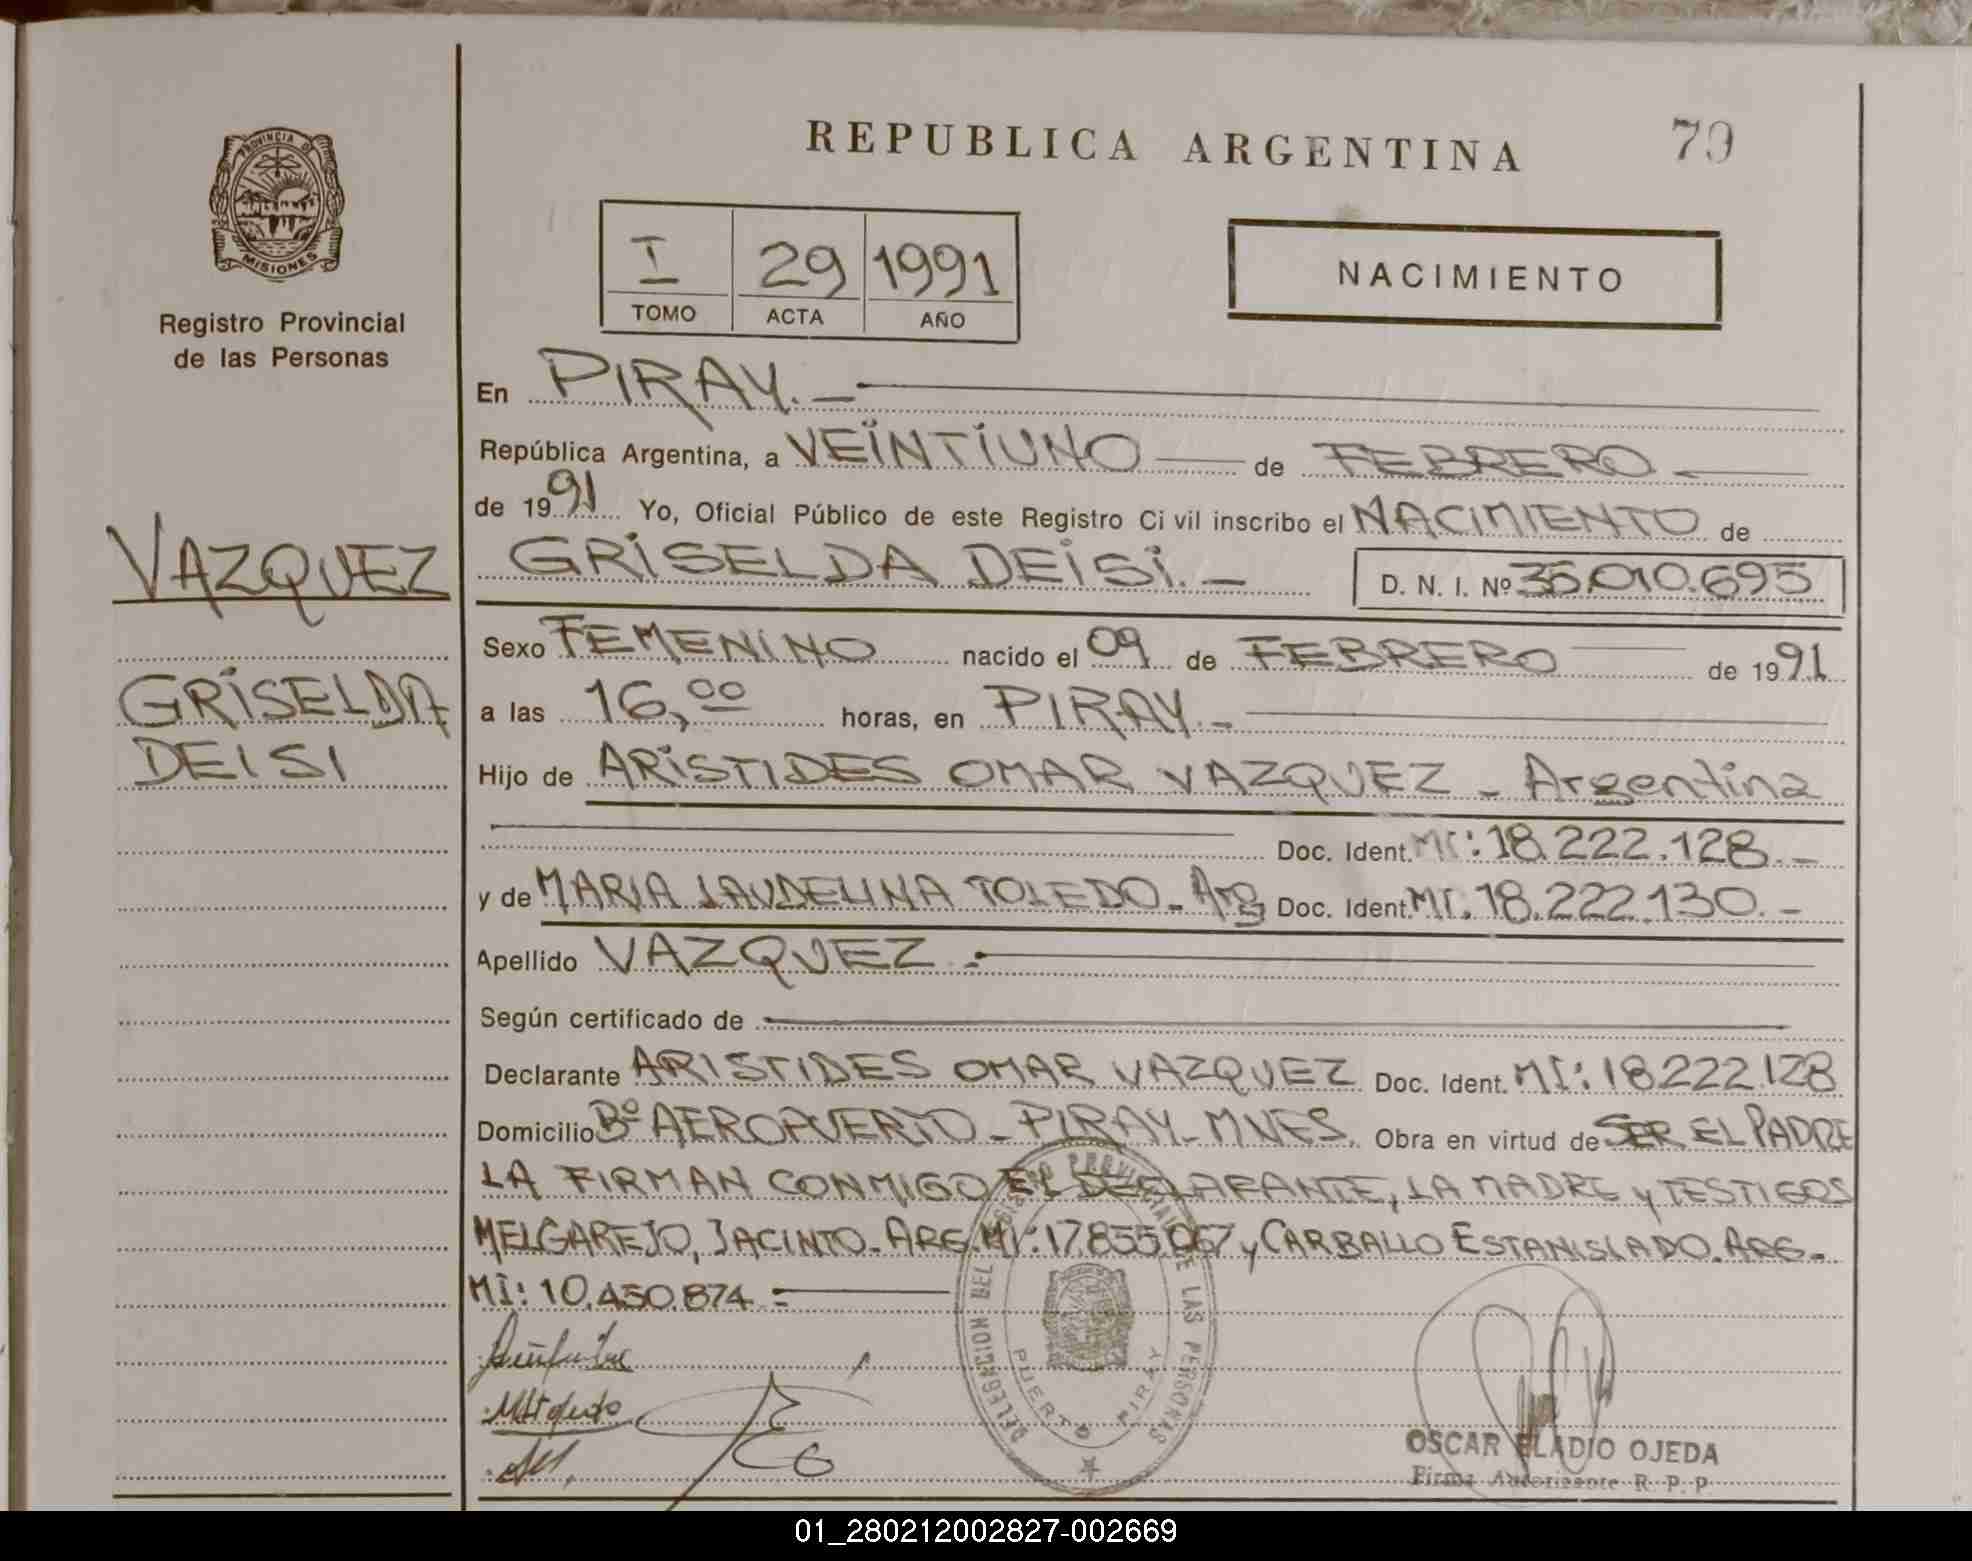 REPUBLICA ARGENTINA
79
PROVINCIA DE
MISIONES
Registro Provincial
de las Personas
I 29 1991
TOMO ACTA AÑO
NACIMIENTO
En PIRAY.-
República Argentina, a VEINTIUNO de FEBRERO
de 1991 Yo, Oficial Público de este Registro Ci vil inscribo el NACIMIENTO de
VAZQUEZ
GRISELDA DEISI.-
D. N. I. Nº 35.010.695
Sexo FEMENINO nacido el 09 de FEBRERO de 1991
GRISELDA
DEISI
a las 16,00 horas, en PIRAY.-
Hijo de ARISTIDES OMAR VAZQUEZ - Argentina
Doc. Ident. MI: 18.222.128.-
y de MARIA LAUDELINA TOLEDO - Arg Doc. Ident. MI. 18.222.130.-
Apellido VAZQUEZ.-
Según certificado de
Declarante ARISTIDES OMAR VAZQUEZ Doc. Ident. MI: 18222128
Domicilio Bº AEROPUERTO - PIRAY - MNES. Obra en virtud de SER EL PADRE
LA FIRMAN CONMIGO EL DECLARANTE, LA MADRE y TESTIGOS
MELGAREJO, JACINTO - ARG. MI: 17.855.067 y CARBALLO ESTANISLADO. ARG.-
MI: 10.450.874.-
DELEGACION DEL REGISTRO PROVINCIAL DE LAS PERSONAS
PUERTO PIRAY
OSCAR ELADIO OJEDA
Firma Autorizante R. P. P.
01_280212002827-002669